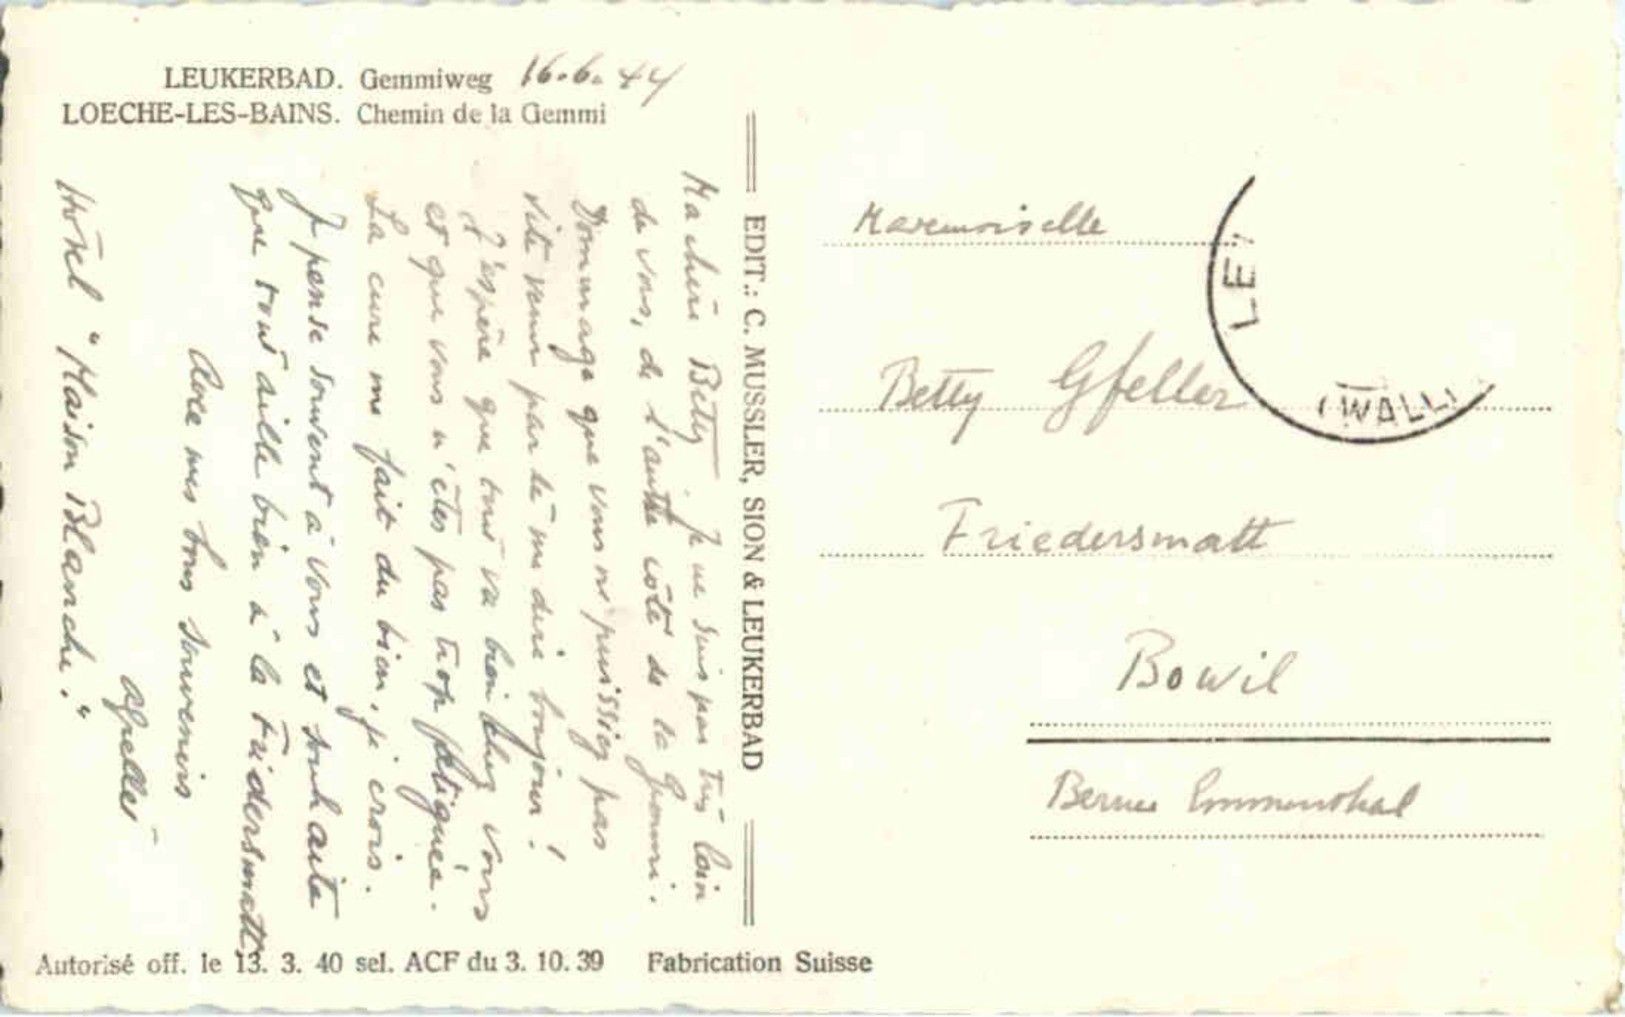 LEUKERBAD. Gemmiweg 16.6.44
LOECHE-LES-BAINS. Chemin de la Gemmi
Ma chère Betty. Je ne suis pas très loin
de vous, de l'autre côté de la Gemmi.
Dommage que vous ne puissiez pas
vite venir par là me dire bonjour!
J'espère que tout va bien chez vous
et que vous n'êtes pas trop fatiguée.
La cure me fait du bien, je crois.
Je pense souvent à vous et souhaite
que tout aille bien à la Friedersmatt.
Avec mes bons souvenirs
Hôtel "Maison Blanche."
EDIT.: C. MUSSLER, SION & LEUKERBAD
Mademoiselle
Betty Gfeller
Friedersmatt
Bowil
Berne Emmenthal
LEU
(WALLI
Autorisé off. le 13. 3. 40 sel. ACF du 3. 10. 39 Fabrication Suisse